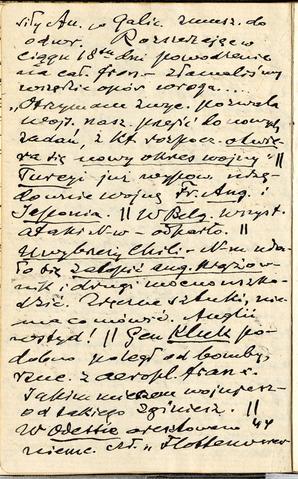 siły Au. w Galic. zmusz. do
odwr. Rozszerzając w
ciągu 18tu dni powodzenie
na cał. fron. – złamaliśmy
wszędzie opór wroga....
„Otrzymane zwyc. pozwala
wojs. nasz. przejść do nowych
zadań, z kt. rozpocz. otwie-
ra się nowy okres wojny” ||
Turcji już wypow. urzę-
downie wojnę Fr. Ang. i
Japonia. || W Belg. wszyst.
ataki N-w – odparto. ||
U wybrzeży Chili – N-m uda-
ło się zatopić ang. krążow-
nik i drugi mocno uszko-
dzić. Zręczne sztuki, nie-
ma co mówić. Anglii
wstyd! || Gen. Kluk po-
dobno poległ od bomby,
rzuc. z aeropl. franc.
Jakim mieczem wojujesz –
od takiego zginiesz. ||
W Odessie aresztowano 44
niemc. czł. „Flottenverein